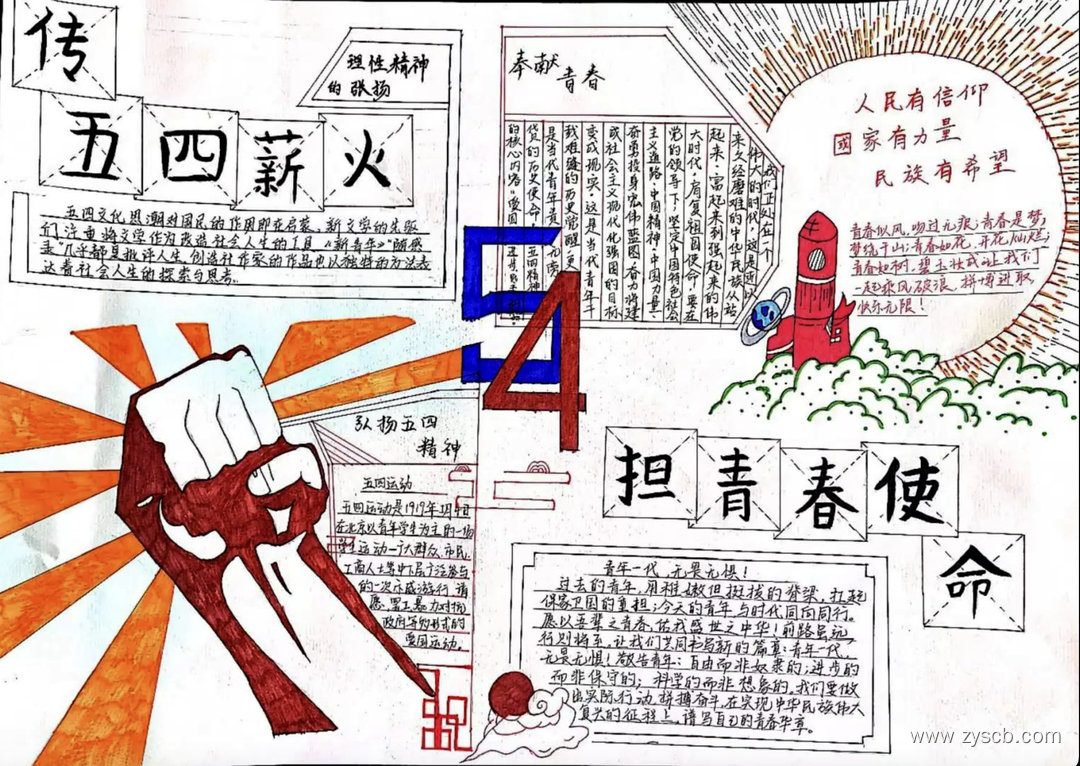 传
五四薪火
理性精神
的张扬
五四文化思潮对国民的作用即在启蒙，新文学的先驱
们，注重将文学作为改造社会人生的工具，《新青年》"随感
录"几乎都是批评人生，创造社作家的作品也以独特的方法表
达着社会人生的探索与思考。
奉献
青春
我们正处在一个
伟大的时代，这是近以
来久经磨难的中华民族从站
起来、富起来到强起来的伟
大时代，肩复祖国使命，要在
党的领导下，坚定中国特色社会
主义道路，中国精神，中国力量，
奋勇投身宏伟蓝图，奋力将建
成社会主义现代化强国的目标
变成现实，这是当代青年
是当代青年
货的历史使命，五四精神
的核心内容"爱国
人民有信仰
國家有力量
民族有希望
青春似风，吻过无痕；青春是梦，
梦绕千山；青春如花，开花灿烂；
青春如树，碧玉妆成，让我们
一起乘风破浪，拼搏进取，
快乐无限！
54
弘扬五四
精神
五四运动
五四运动是1919年5月4日
在北京以青年学生为主的一场
学生运动，广大群众、市民、
工商人士等中下层广泛参与
的一次示威游行、请
愿、罢工、暴力对抗
政府等多形式的
爱国运动。
担青春使
命
青年一代，无畏无惧！
过去的青年，用稚嫩但挺拔的脊梁，扛起
保家卫国的重担；今天的青年与时代同向同行。
愿以吾辈之青春，佑我盛世之中华！前路虽远，
行则将至，让我们共同书写新的篇章：青年一代，
无畏无惧！敬告青年：自由而非奴隶的；进步的
而非保守的；科学的而非想象的。我们要做
出实际行动，拼搏奋斗，在实现中华民族伟大
复兴的征程上，谱写自己的青春华章。
www.zyscb.com